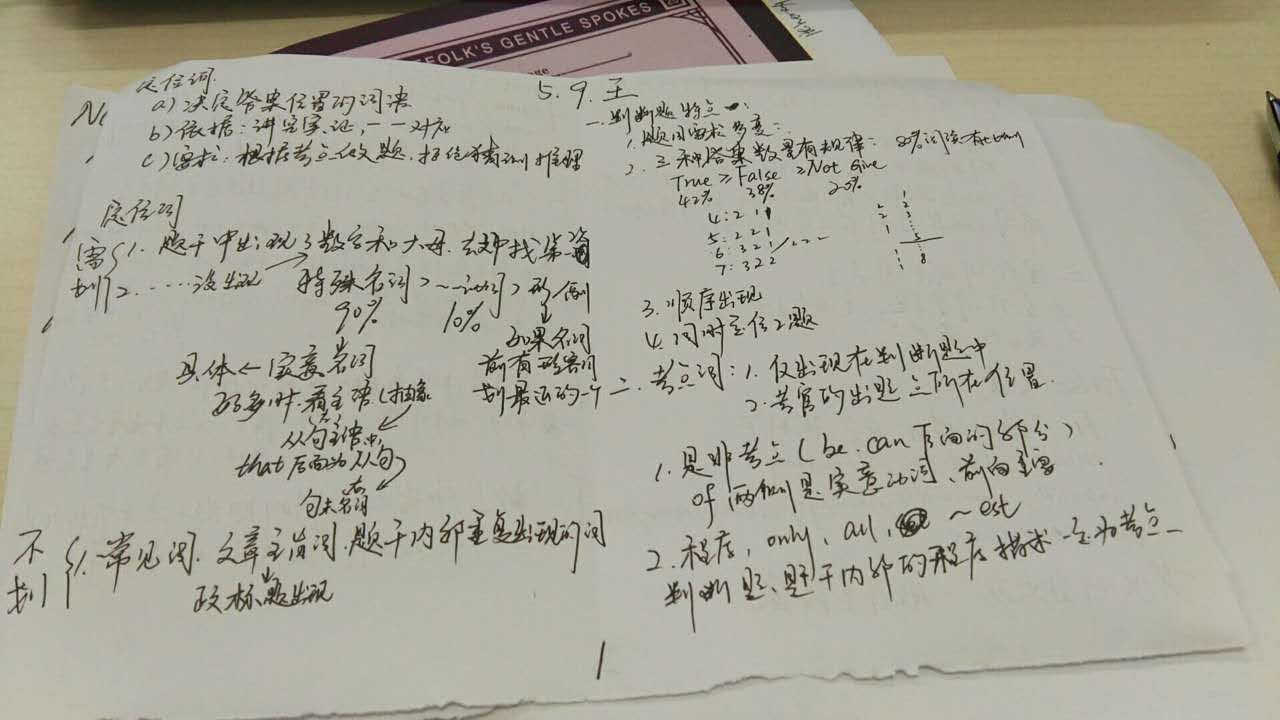 FOLK'S GENTLE SPOKES
定位词
a) 决定答案位置的词语
b) 依据：讲究实证，一一对应
c) 要求：根据考点做题，拒绝猜测推理
定位词
需划
1. 题干中出现了数字和大写，去文中找
2. ……没出现 特殊名词 > ~动词 > 形 副
90% 10%
如果名词
前有形容词
划最近的一个
具体 ← 实意名词
的多时，看主语 抽象
从句主语中
that后面为从句
句末名词
不划
1. 常见词、文章主旨词、题干内部重复出现的词
标题出现
5.9.王
一、判断题特点：
1. 题目要求多变：
2. 三种答案数量有规律：
True ≥ False ≥ Not Give
42% 38% 20%
4: 2 1 1
5: 2 2 1
6: 3 2 1 / 2 2 2
7: 3 2 2
3. 顺序出现
4. 同时定位2题
二、考点词：1. 仅出现在判断题中
2. 考官的出题点所在位置
1. 是非考点（be. can 后面的部分）
of 两侧是实意动词、前向主谓
2. 程度，only，all， ~est
判断题、题干内部的程度描述一定为考点
1